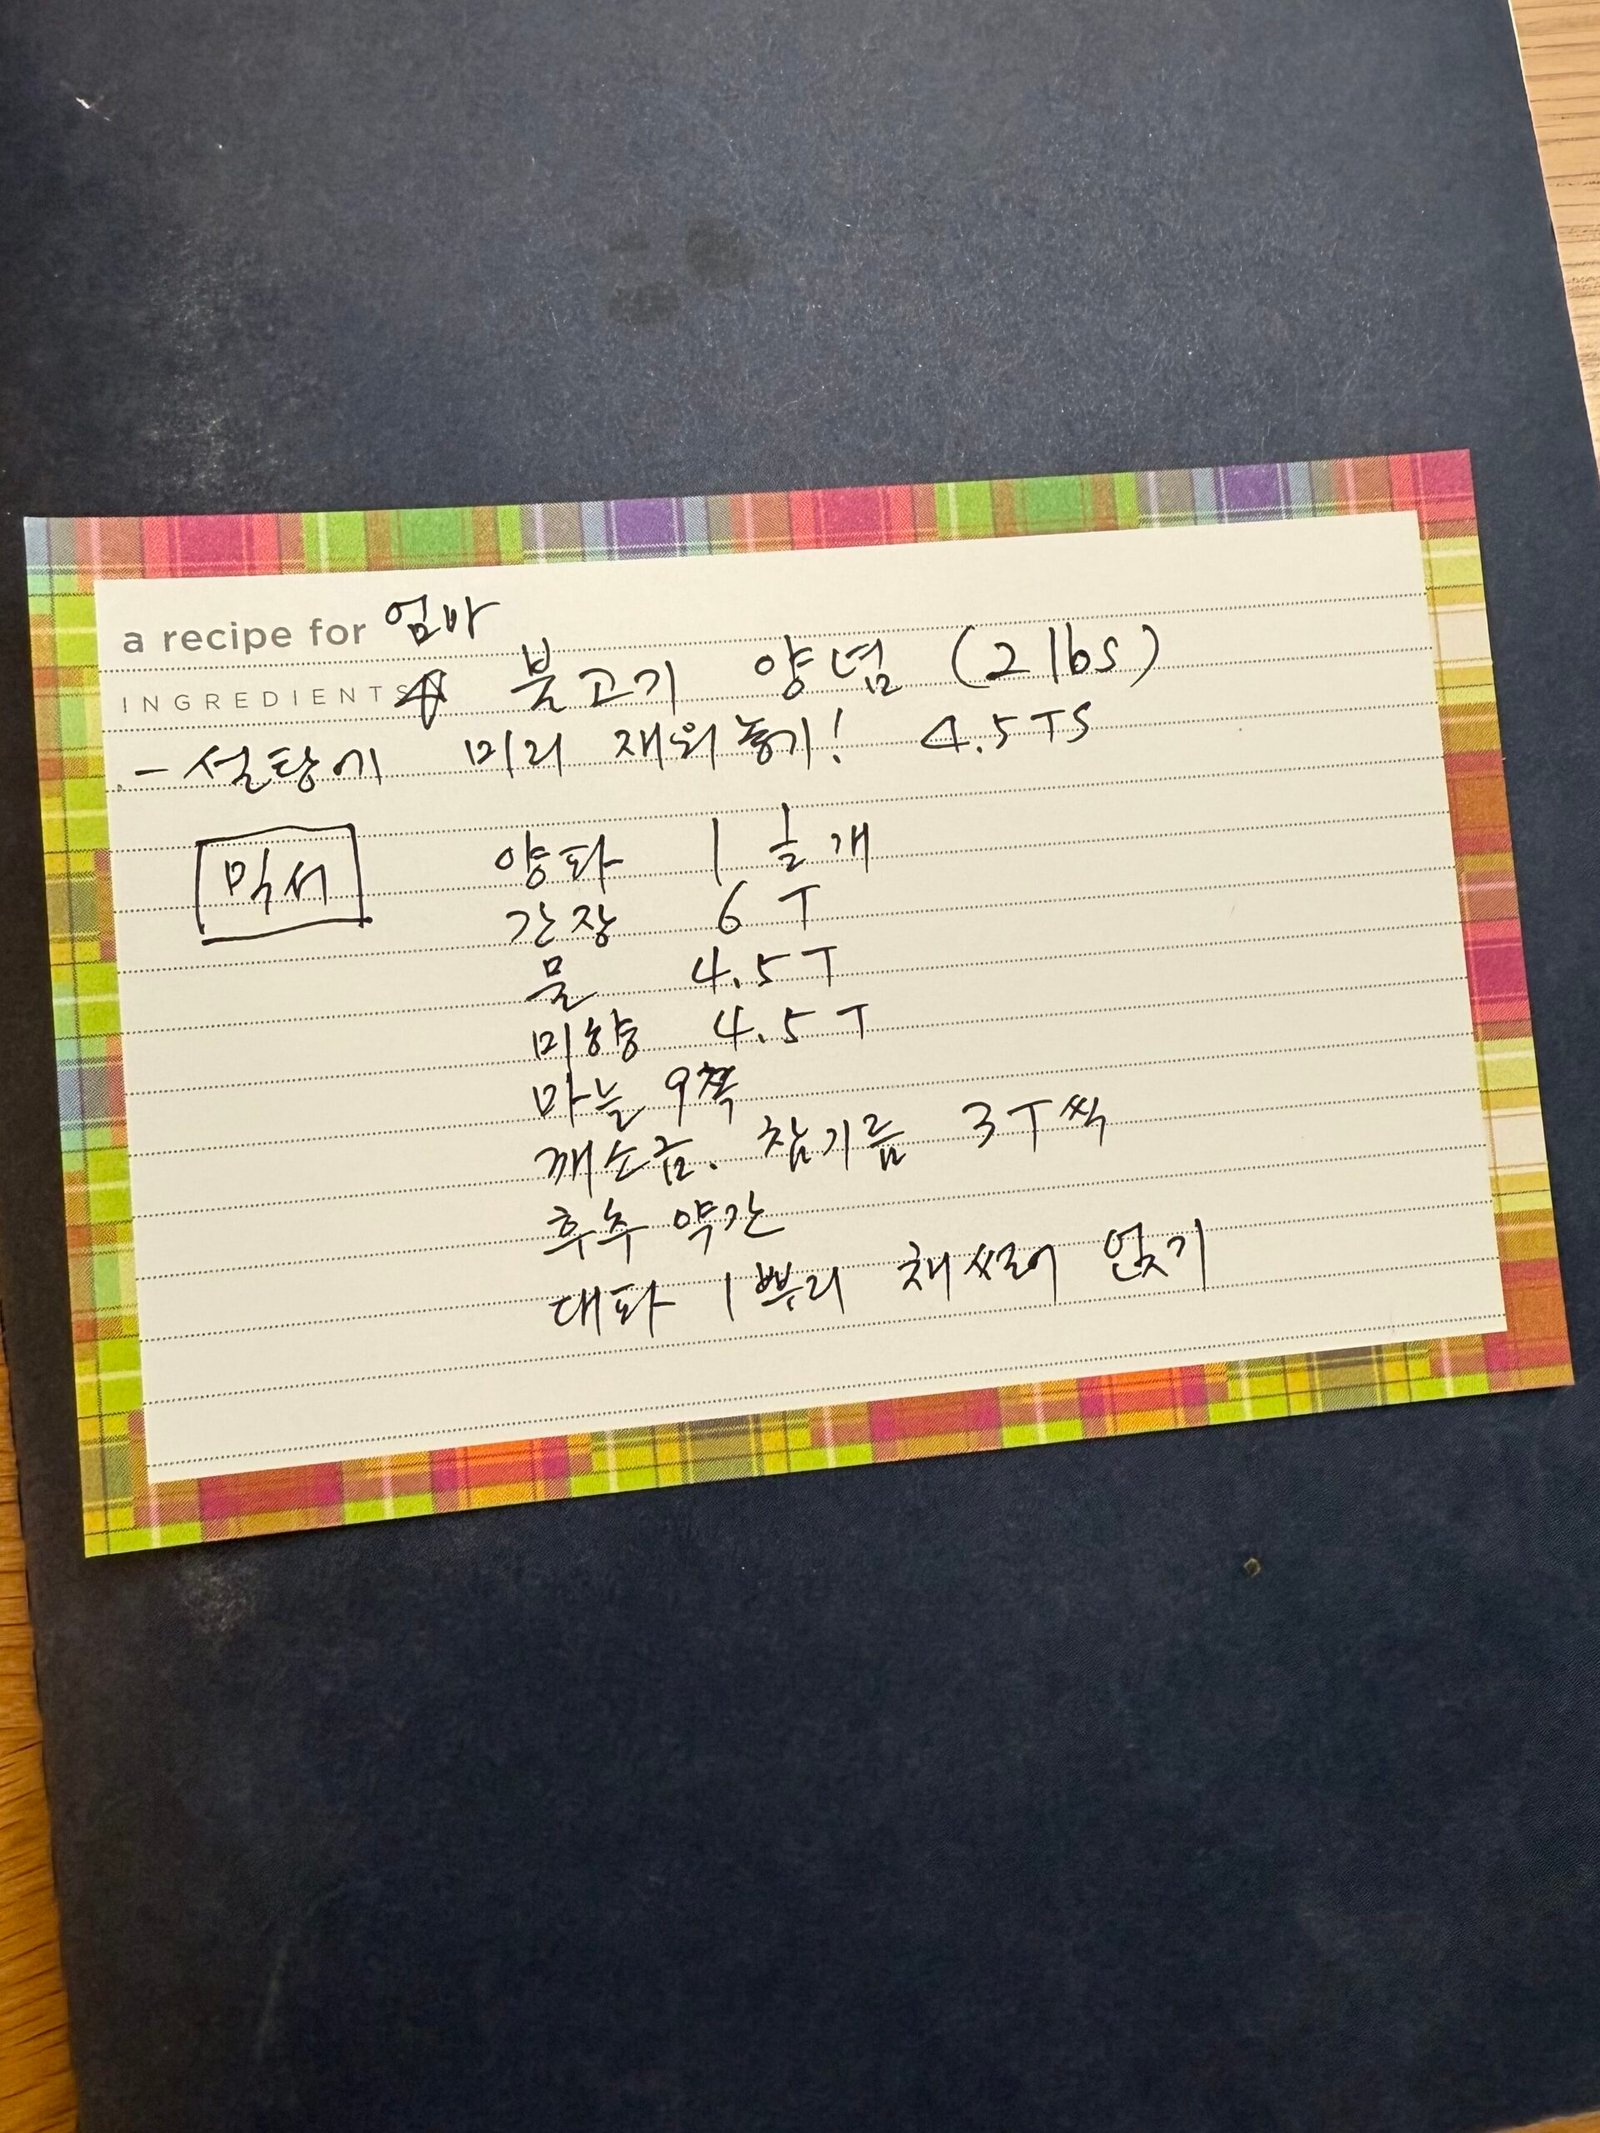 a recipe for 엄마
INGREDIENTS 불고기 양념 (2 lbs)
- 설탕에 미리 재워놓기! 4.5TS
믹서 양파 1 1/2개
간장 6T
물 4.5T
미향 4.5T
마늘 9쪽
깨소금. 참기름 3T씩
후추 약간
대파 1뿌리 채썰어 얹기